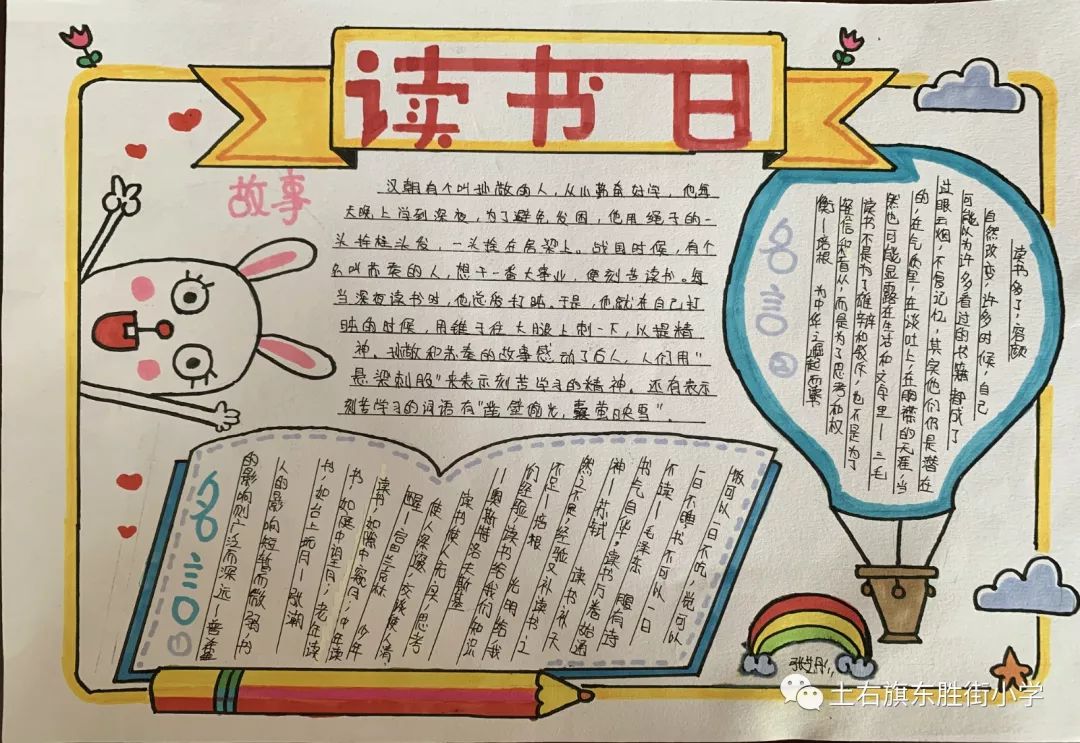 读书日
故事
汉朝有个叫孙敬的人，从小勤奋好学，他每
天晚上学到深夜，为了避免发困，他用绳子的一
头拴住头发，一头拴在房梁上。战国时候，有个
名叫苏秦的人，想干一番大事业，便刻苦读书。每
当深夜读书时，他总爱打盹。于是，他就在自己打
盹的时候，用锥子往大腿上刺一下，以提精
神。孙敬和苏秦的故事感动了后人，人们用"
悬梁刺股"来表示刻苦学习的精神。还有表示
刻苦学习的词语有"凿壁偷光，囊萤映雪"。
名言
二
读书多了，容颜
自然改变，许多时候，自己
可能以为许多看过的书籍都成了
过眼云烟，不复记忆，其实他们仍是潜在
的，在气质里，在谈吐上，在胸襟的无涯，当
然也可能显露在生活和文字里—三毛
读书不是为了雄辩和驳斥，也不是为了
轻信和盲从，而是为了思考和权
衡—培根 为中华之崛起而读
名言
一
饭可以一日不吃，觉可以
一日不睡，书不可以一日
不读—毛泽东 腹有诗
书气自华。读书万卷始通
神—苏轼 读书补天
然之不足，经验又补读书之
不足—培根 光明给我
们经验，读书给我们知识
—奥斯特洛夫斯基
读书使人充实，思考
使人深邃，交谈使人清
醒—富兰克林
读书，如隙中窥月；中年读
书，如庭中望月；老年读
书，如台上玩月—张潮
人的影响短暂而微弱，书
的影响则广泛而深远—普希金
土右旗东胜街小学